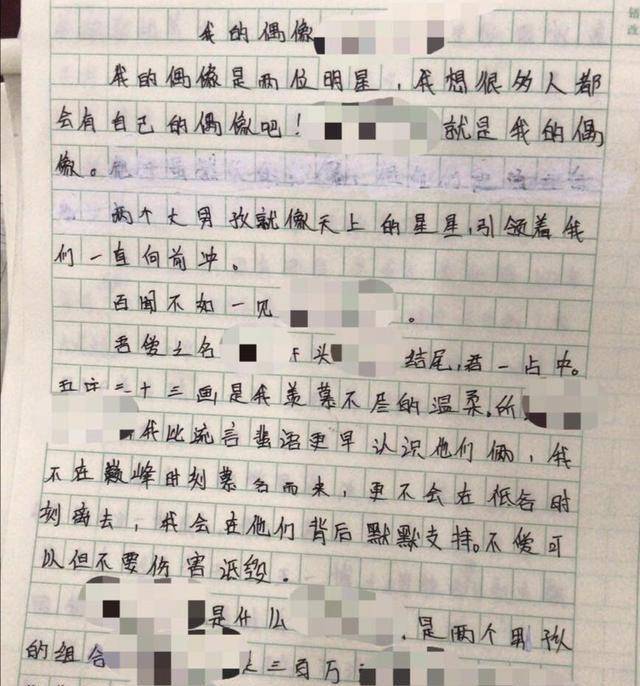 我的偶像
我的偶像是两位明星，我想很多人都
会有自己的偶像吧！就是我的偶
像。
两个大男孩就像天上的星星，引领着我
们一直向前冲。
百闻不如一见。
吾爱之名头结尾，君一占中。
二十三画，是我羡慕不尽的温柔。所
，我比流言蜚语更早认识他们俩，我
不在巅峰时刻慕名而来，更不会在低谷时
刻离去，我会在他们背后默默支持。不爱可
以但不要伤害诋毁。
是什么是两个男孩
的组合三百万